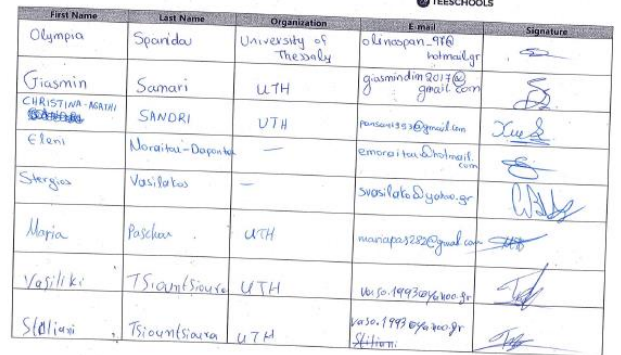 TEESCHOOLS
First Name Last Name Organization E-mail Signature
Olympia Spanidou University of Thessaly olinaspan_97@hotmail.gr
Giasmin Samari UTH giasmindim2017@gmail.com
CHRISTINA-AGATHI SANDRI UTH @gmail.com
Eleni Noraitou-Daponta — emoraitou@hotmail.com
Stergios Vasilakos — svasilako@yahoo.gr
Maria Paschou UTH mariapas282@gmail.com
Vasiliki Tsiountsioura UTH vaso.1993@yahoo.gr
Stiliani Tsiountsioura UTH vaso.1993@yahoo.gr
Stiliani